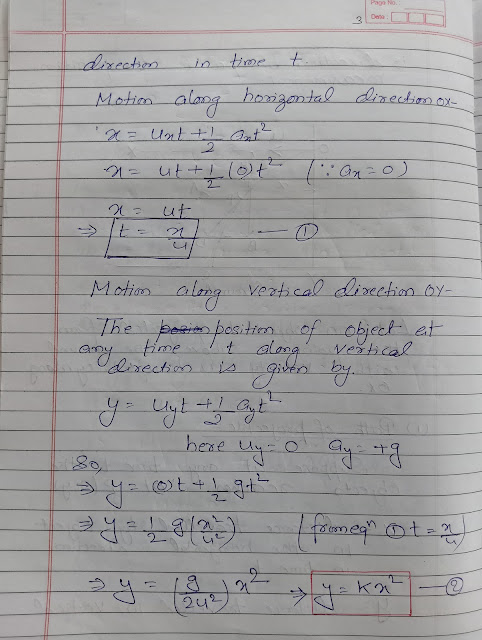 Page No.
Date
3
direction in time t
Motion along horizontal direction OX-
x = Uxt + 1/2 axt²
x = ut + 1/2 (0)t² (∵ ax = 0)
x = ut
⇒ t = x/u — ①
Motion along vertical direction OY-
The position of object at
any time t along vertical
direction is given by.
y = Uyt + 1/2 ayt²
here Uy = 0 ay = +g
So,
⇒ y = (0)t + 1/2 gt²
⇒ y = 1/2 g(x²/u²) (from eqⁿ ① t = x/u)
⇒ y = (g/2u²) x² ⇒ y = Kx² — ②